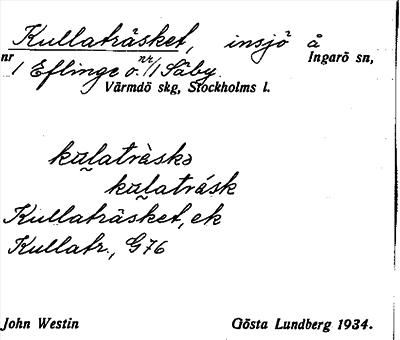 Kullaträsket, insjö å
nr 1 Eflinge o. nr 1 Säby. Ingarö sn,
Värmdö skg, Stockholms l.
kulaträ̀skə
kulatrásk
Kullaträsket, ek
Kullatr., G76
John Westin Gösta Lundberg 1934.